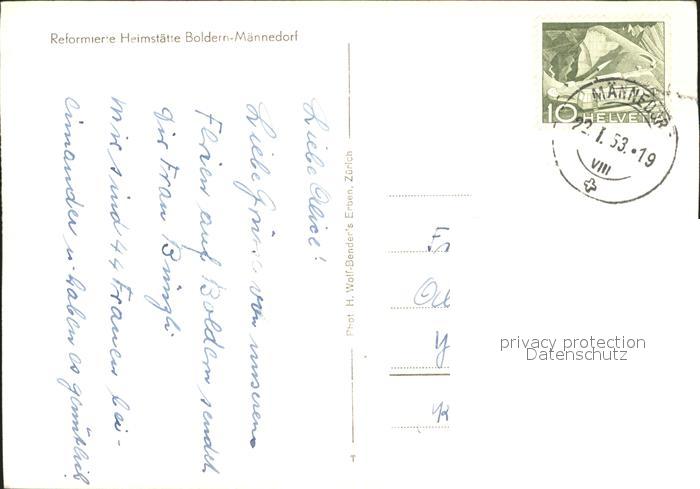 Reformierte Heimstätte Boldern-Männedorf
Liebe Alice!
Liebe Grüsse von unseren
Ferien auf Boldern sendet
Dir Frau
Wir sind 44 Frauen bei-
einander u. haben es gemütlich
Phot. H. Wolf-Bender's Erben, Zürich
10 HELVETIA
MÄNNEDORF
22.I.53.-19
VIII
privacy protection
Datenschutz